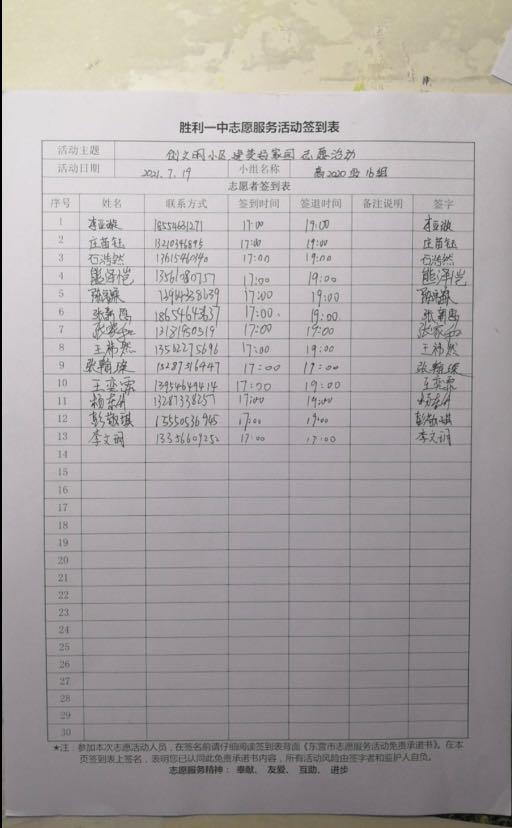 胜利一中志愿服务活动签到表
活动主题 创文明小区 建美好家园 志愿活动
活动日期 2021.7.19 小组名称 高2020级16组
志愿者签到表
序号 姓名 联系方式 签到时间 签退时间 备注说明 签字
1 李亚璇 18554631271 17:00 19:00 李亚璇
2 庄苗钰 13210346895 17:00 19:00 庄苗钰
3 石浩然 17:00 19:00 石浩然
4 熊泽恺 13561080757 17:00 19:00 熊泽恺
5 17:00 19:00
6 张新禹 18654643637 17:00 19:00 张新禹
7 张家和 13181950519 17:00 19:00 张家和
8 王祎然 13562275696 17:00 19:00 王祎然
9 张翰璇 15287316447 17:00 19:00 张翰璇
10 王奕霖 13954649414 17:00 19:00 王奕霖
11 杨东升 13287338257 17:00 19:00 杨东升
12 彭敬琪 15550536945 17:00 19:00 彭敬琪
13 李文润 13356609252 17:00 19:00 李文润
14
15
16
17
18
19
20
21
22
23
24
25
26
27
28
29
30
★注：参加本次志愿活动人员，在签名前请仔细阅读签到表背面《东营市志愿服务活动免责承诺书》。在本
页签到表上签名，表明您已认同此免责承诺书内容，所有活动风险由签字者和监护人自负。
志愿服务精神： 奉献、 友爱、 互助、 进步